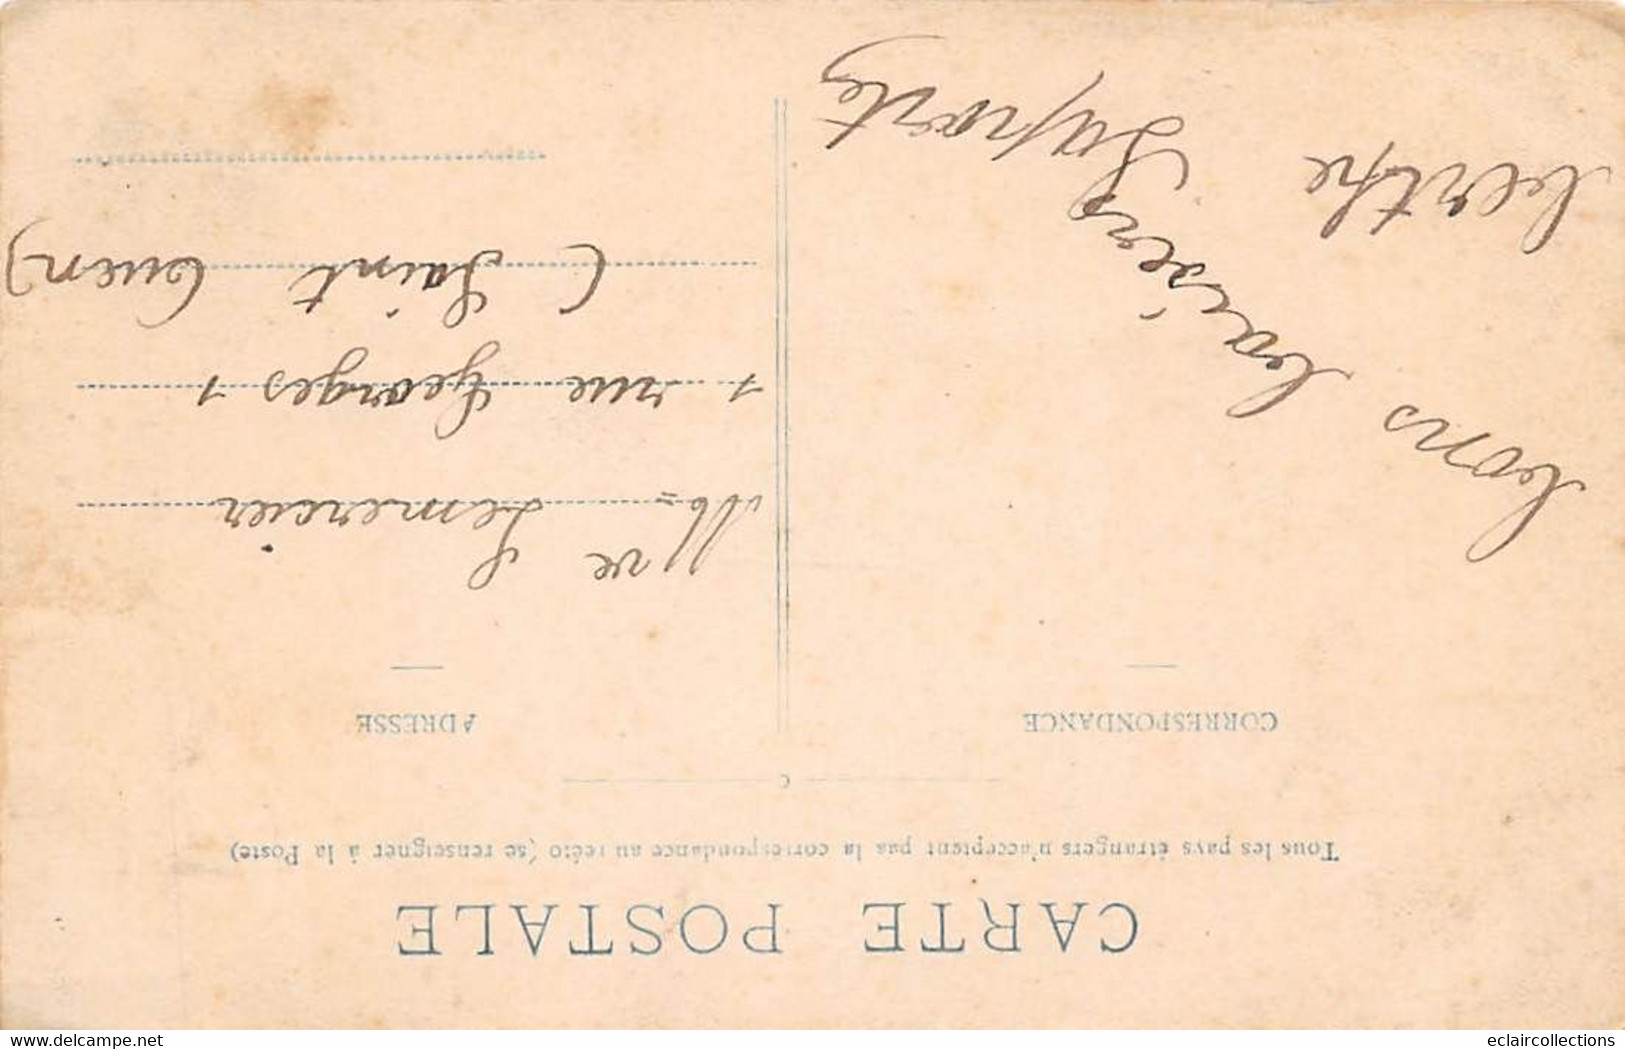 CARTE POSTALE
Tous les pays étrangers n'acceptent pas la correspondance au recto (se renseigner à la Poste)
CORRESPONDANCE
ADRESSE
bons baisers
berthe
Mve Lemercier
1 rue Georges 1
(Saint Ouen)
delcampe.net
eclaircollections